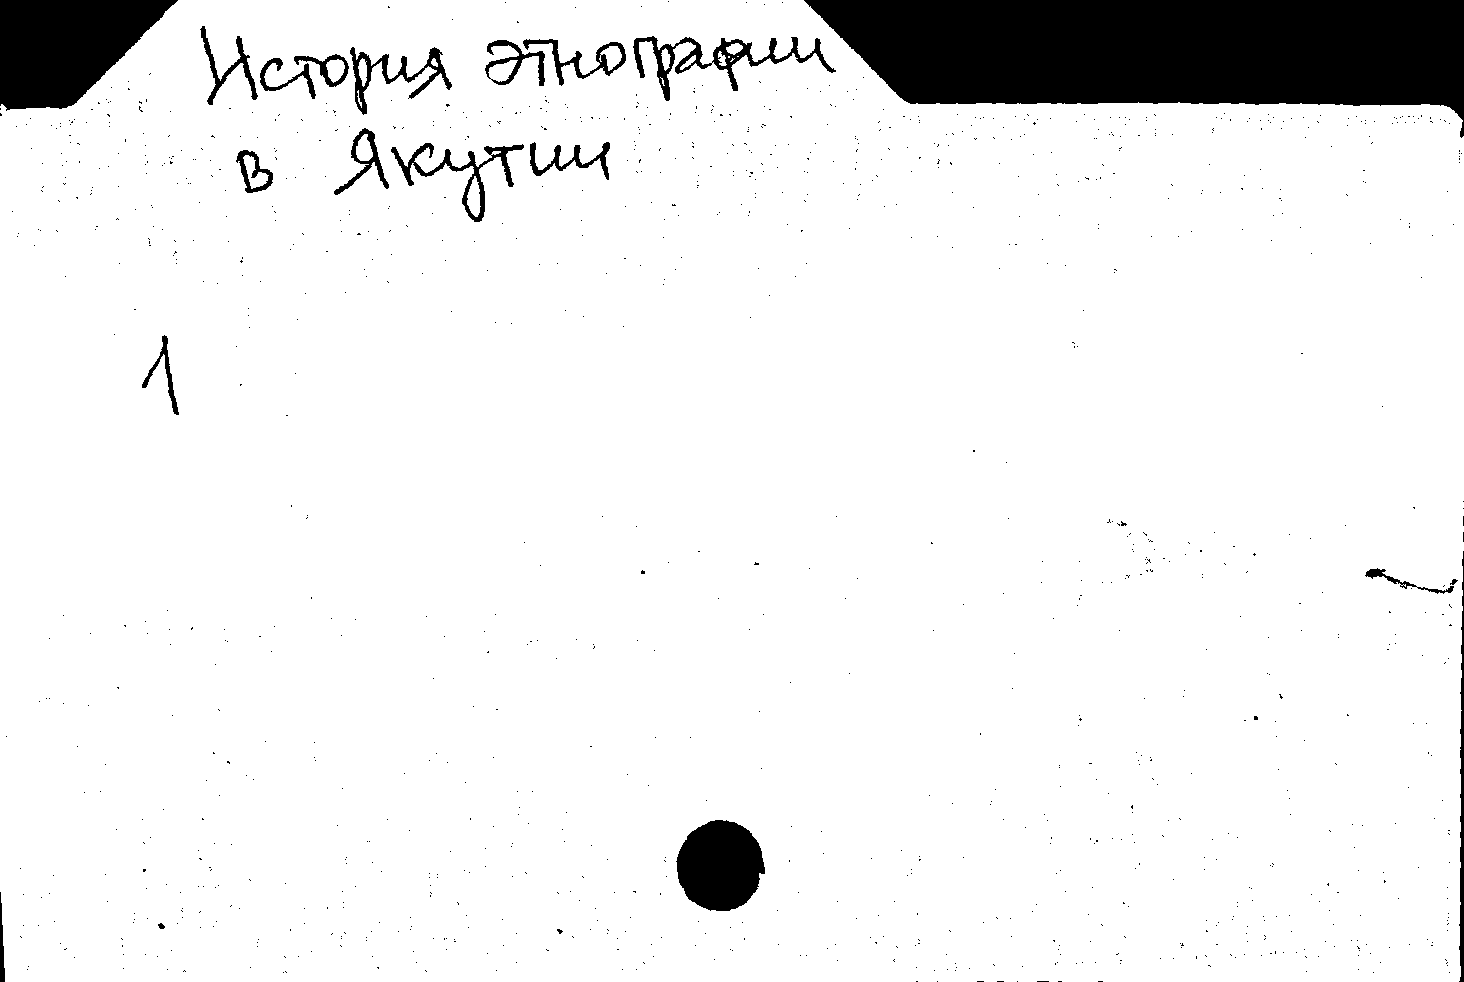 История этнографии
в Якутии
1